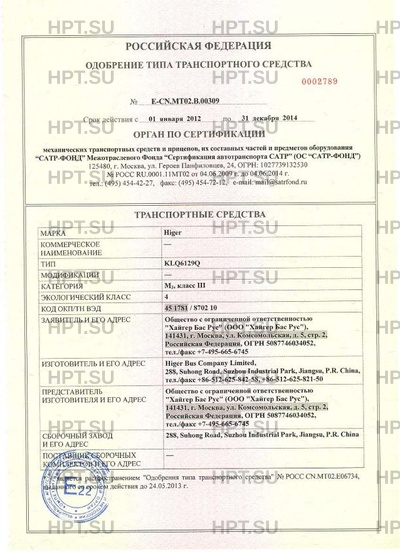 HPT.SU HPT.SU HPT.SU
РОССИЙСКАЯ ФЕДЕРАЦИЯ
ОДОБРЕНИЕ ТИПА ТРАНСПОРТНОГО СРЕДСТВА
0002789
№ E-CN.MT02.B.00309
Срок действия с 01 января 2012 по 31 декабря 2014
ОРГАН ПО СЕРТИФИКАЦИИ
механических транспортных средств и прицепов, их составных частей и предметов оборудования
“САТР-ФОНД” Межотраслевого Фонда “Сертификация автотранспорта САТР” (ОС “САТР-ФОНД”)
125480, г. Москва, ул. Героев Панфиловцев, 24, ОГРН: 1027739132530
№ РОСС RU.0001.11МТ02 от 04.06.2009 до 04.06.2014 г.
тел.: (495) 454-42-27, факс: (495) 454-72-12, e-mail: mail@satrfond.ru
ТРАНСПОРТНЫЕ СРЕДСТВА
МАРКА Higer
КОММЕРЧЕСКОЕ —
НАИМЕНОВАНИЕ
ТИП KLQ6129Q
МОДИФИКАЦИИ —
КАТЕГОРИЯ M3, класс III
ЭКОЛОГИЧЕСКИЙ КЛАСС 4
КОД ОКП/ТН ВЭД 45 1781 / 8702 10
ЗАЯВИТЕЛЬ И ЕГО АДРЕС Общество с ограниченной ответственностью
"Хайгер Бас Рус" (ООО "Хайгер Бас Рус"),
141431, г. Москва, ул. Комсомольская, д. 5, стр. 2,
Российская Федерация, ОГРН 5087746034052,
тел./факс +7-495-665-6745
ИЗГОТОВИТЕЛЬ И ЕГО АДРЕС Higer Bus Company Limited,
288, Suhong Road, Suzhou Industrial Park, Jiangsu, P.R. China,
тел./факс +86-512-625-842-58, +86-512-625-821-50
ПРЕДСТАВИТЕЛЬ Общество с ограниченной ответственностью
ИЗГОТОВИТЕЛЯ И ЕГО АДРЕС "Хайгер Бас Рус" (ООО "Хайгер Бас Рус"),
141431, г. Москва, ул. Комсомольская, д. 5, стр. 2,
Российская Федерация, ОГРН 5087746034052,
тел./факс +7-495-665-6745
СБОРОЧНЫЙ ЗАВОД 288, Suhong Road, Suzhou Industrial Park, Jiangsu, P.R. China
И ЕГО АДРЕС
ПОСТАВЩИК СБОРОЧНЫХ —
КОМПЛЕКТОВ И ЕГО АДРЕС
E 22
является распространением "Одобрения типа транспортного средства" № РОСС CN.MT02.E06734,
выданного со сроком действия до 24.05.2013 г.
HPT.SU HPT.SU HPT.SU